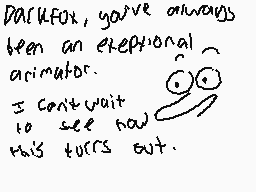 Darkfox, you've always
been an exeptional
arimator.
I can't wait
to see how
this turrs out.